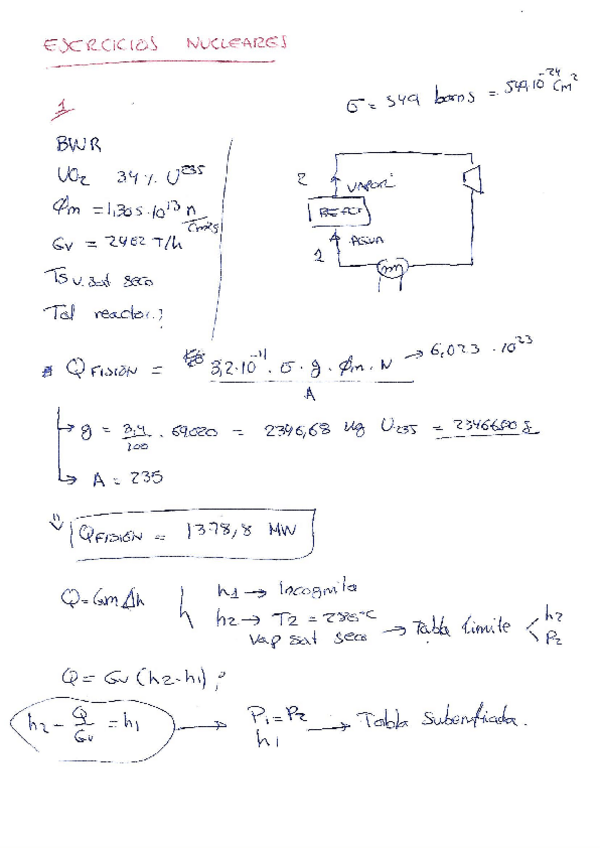 EJERCICIOS NUCLEARES
1
σ = 549 barns = 549·10^-24 cm^2
BWR
UO2 3,4 % U^235
Φm = 1,305·10^13 n
Gv = 2482 T/h
v.sat seco
Tal reactor?
2 VAPOR
REACT
1 AGUA
Q FISIÓN = 3,2·10^-11 · σ · g · Φm · N → 6,023 · 10^23
A
g = 3,4/100 · 69020 = 2346,68 kg U235 = 2346680 g
A = 235
⇒ Q FISIÓN = 1378,8 MW
Q = Gm Δh
h1 → Incognita
h2 → T2 = 285°C
Vap sat seco → Tabla Limite < h2 P2
Q = Gv (h2-h1) ;
h2 - Q/Gv = h1 → P1 = P2 h1 → Tabla Subenfriada.